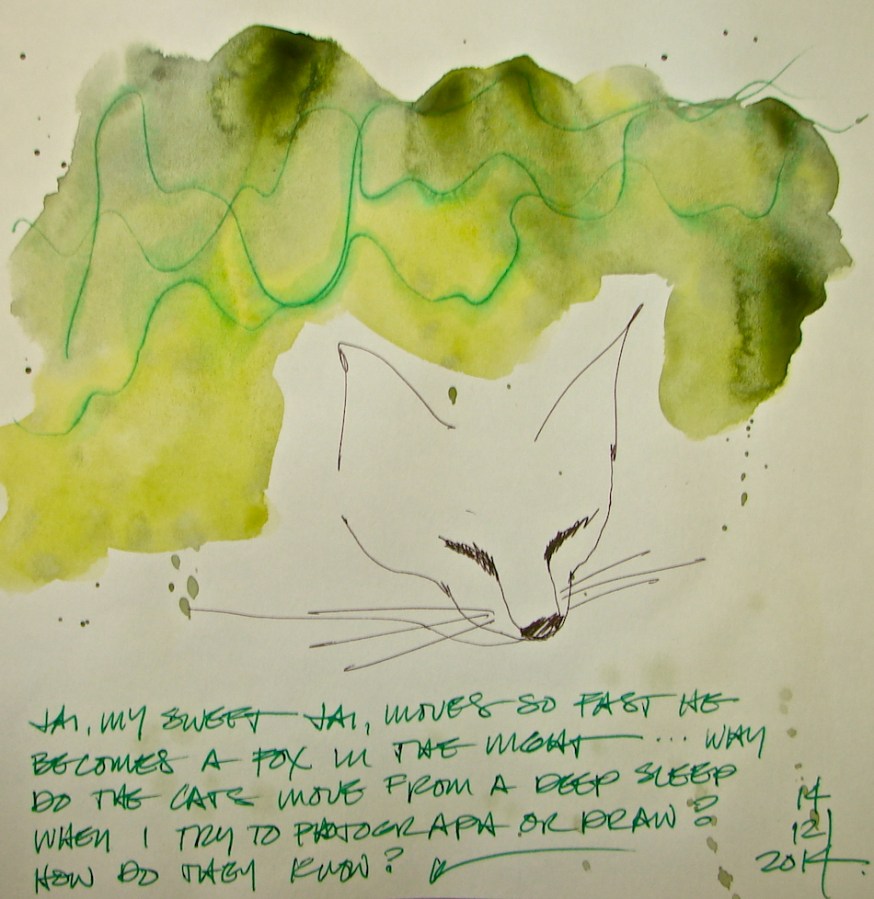 JAI, MY SWEET JAI, MOVES SO FAST HE
BECOMES A FOX IN THE NIGHT ... WHY
DO THE CATS MOVE FROM A DEEP SLEEP
WHEN I TRY TO PHOTOGRAPH OR DRAW?
HOW DO THEY KNOW?
14
12
2014